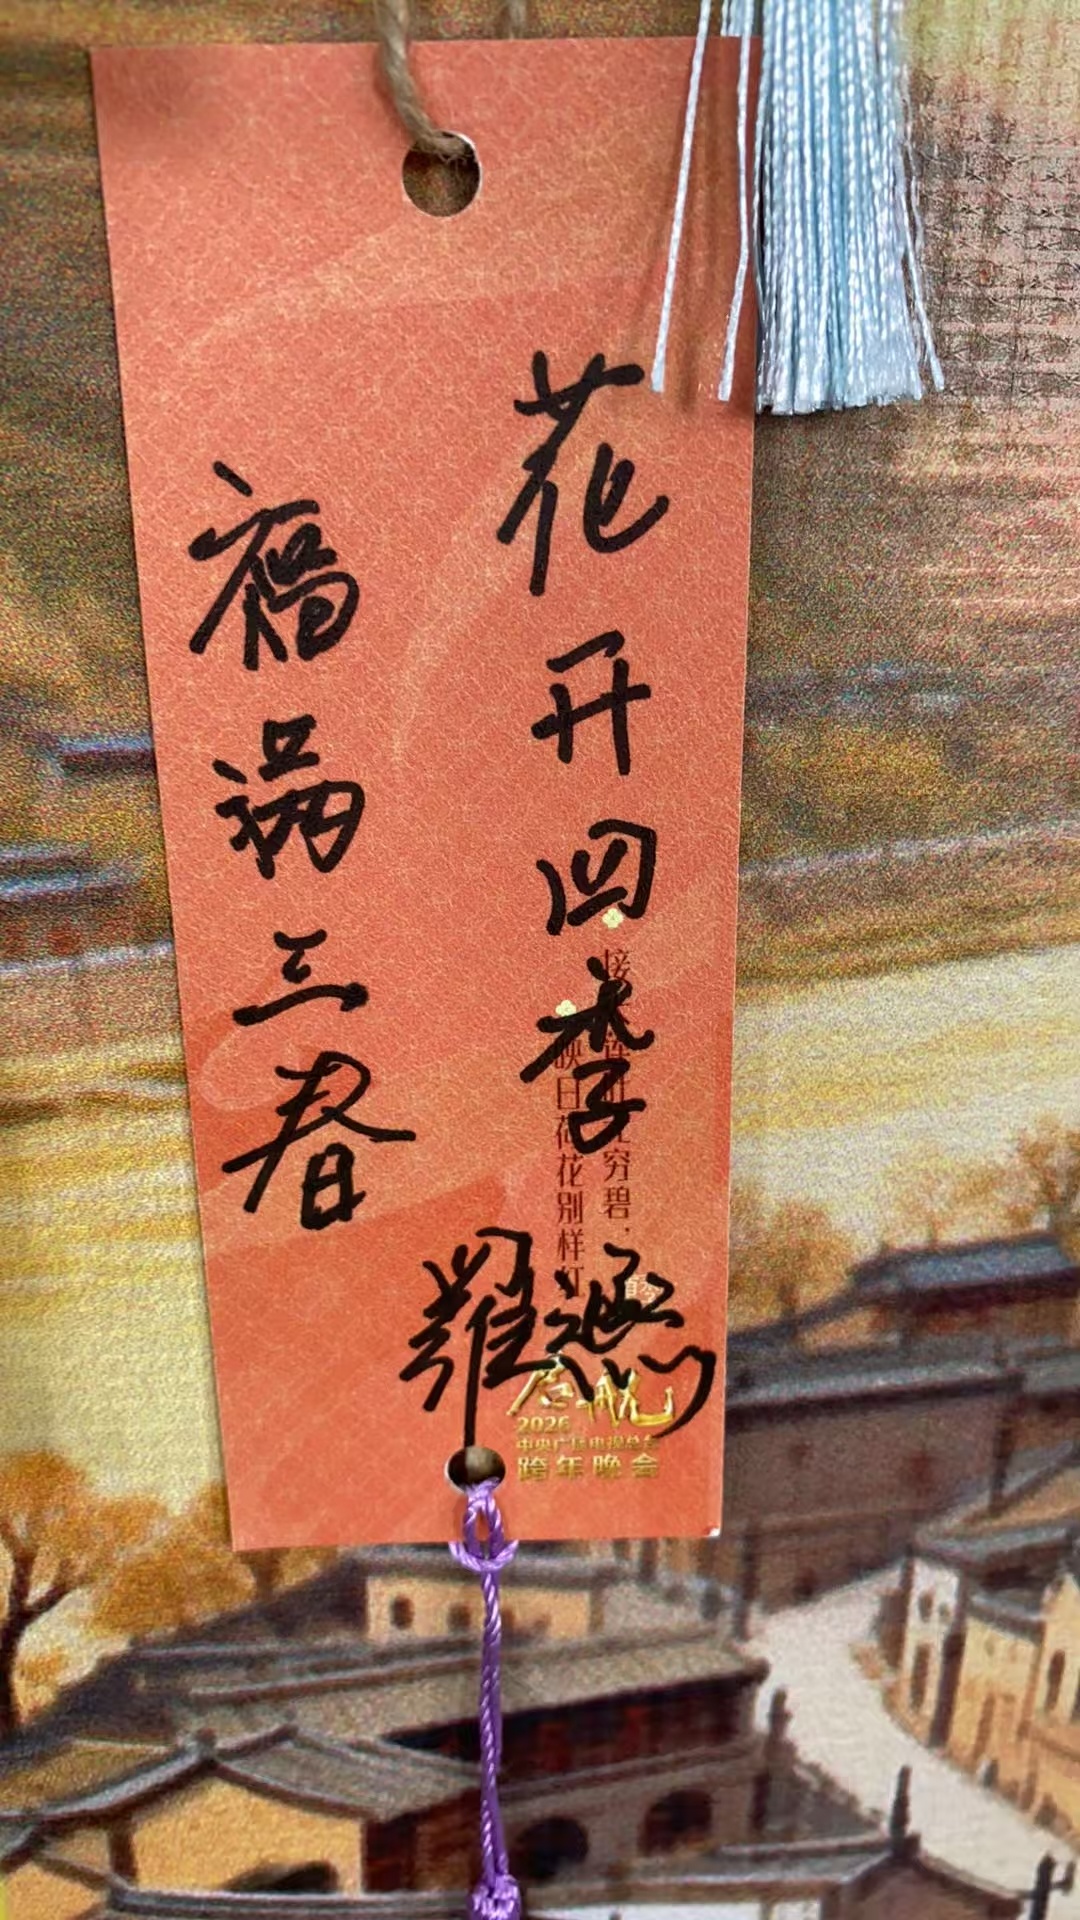 花开四季
福满三春
接莲叶无穷碧，
映日荷花别样红
启航
2026
中央广播电视总台
跨年晚会